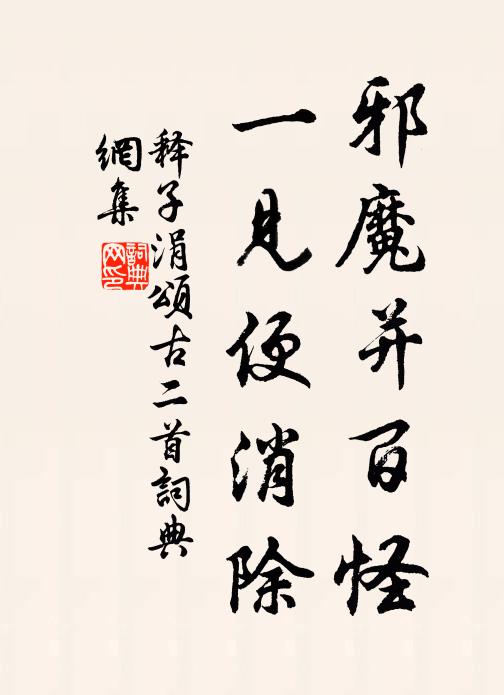 邪魔并百怪
一见便消除
释子涓颂古二首詞典
網集
詞典
网印